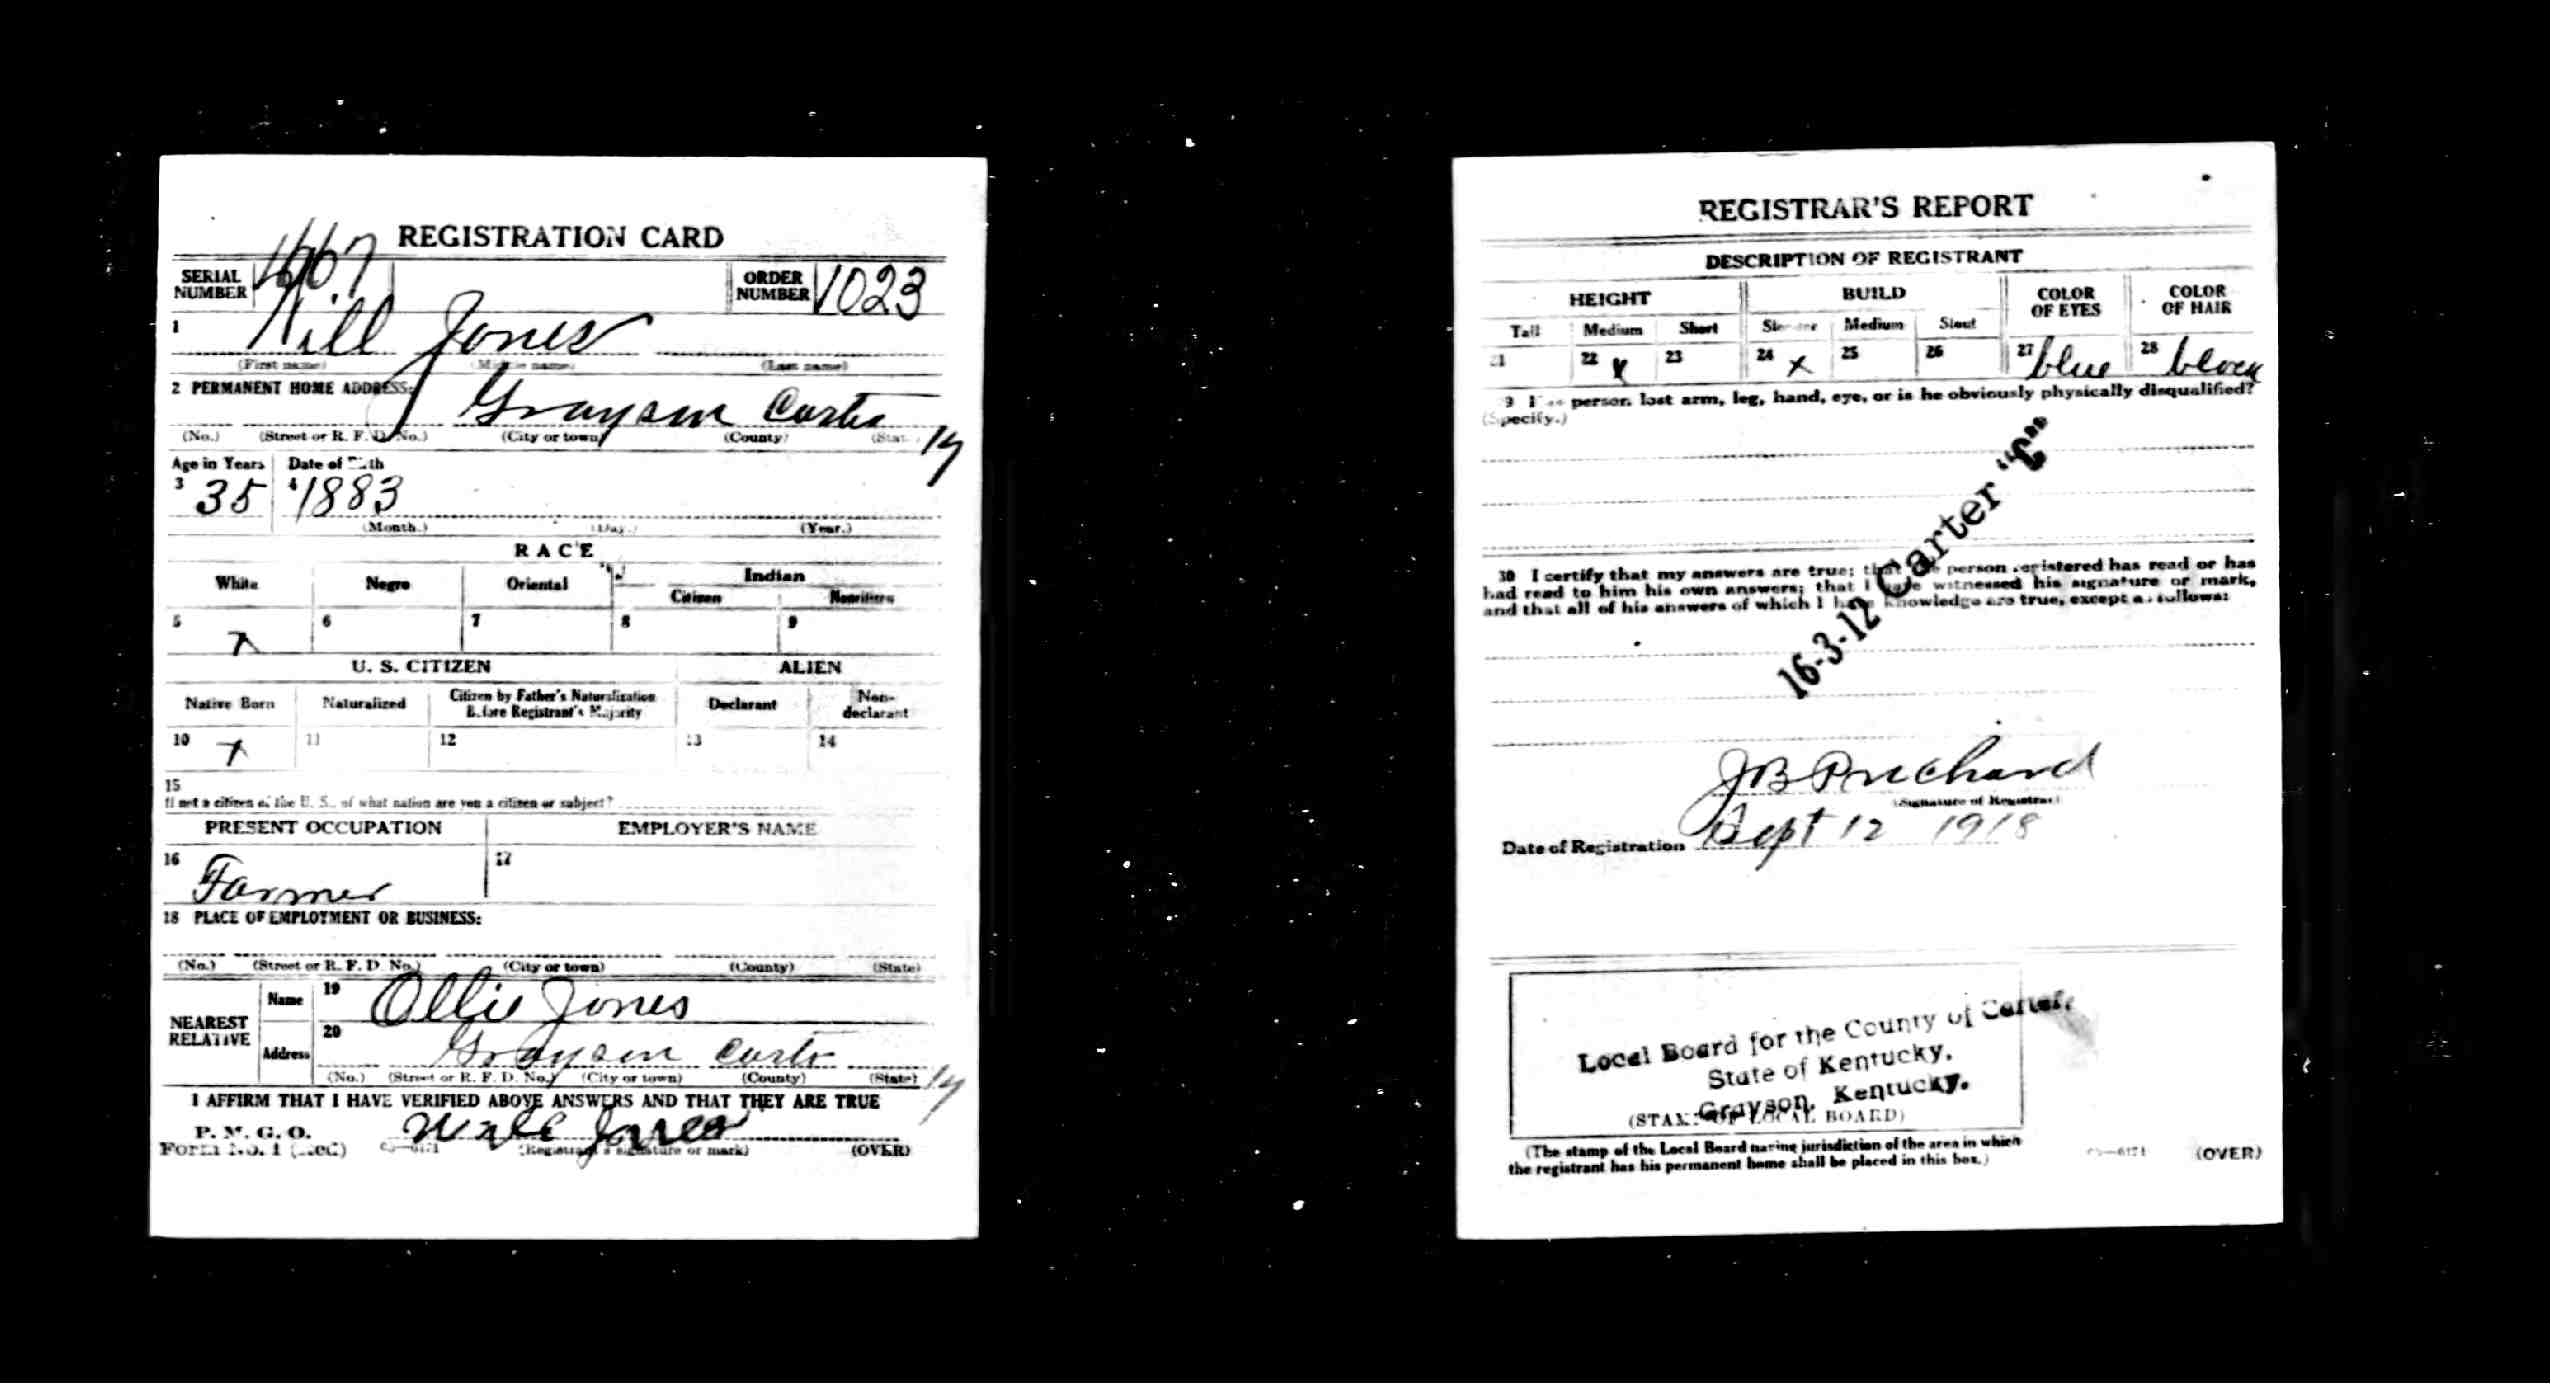 REGISTRATION CARD
SERIAL NUMBER 1667 ORDER NUMBER 1023
1 Will Jones
(First name) (Middle name) (Last name)
2 PERMANENT HOME ADDRESS:
Grayson Carter Ky
(No.) (Street or R. F. D. No.) (City or town) (County) (State)
Age in Years Date of Birth
3 35 4 1883
(Month.) (Day.) (Year.)
RACE
White Negro Oriental Indian
Citizen Noncitizen
5 X 6 7 8 9
U. S. CITIZEN ALIEN
Native Born Naturalized Citizen by Father's Naturalization Before Registrant's Majority Declarant Non-declarant
10 X 11 12 13 14
15
If not a citizen of the U. S., of what nation are you a citizen or subject?
PRESENT OCCUPATION EMPLOYER'S NAME
16 Farmer 17
18 PLACE OF EMPLOYMENT OR BUSINESS:
(No.) (Street or R. F. D. No.) (City or town) (County) (State)
NEAREST RELATIVE Name 19 Ollie Jones
Address 20 Grayson Carter Ky
(No.) (Street or R. F. D. No.) (City or town) (County) (State)
I AFFIRM THAT I HAVE VERIFIED ABOVE ANSWERS AND THAT THEY ARE TRUE
P. M. G. O.
Form No. 1 (Red) Jones
(Registrant's signature or mark) (OVER)
REGISTRAR'S REPORT
DESCRIPTION OF REGISTRANT
HEIGHT BUILD COLOR OF EYES COLOR OF HAIR
Tall Medium Short Slender Medium Stout
21 22 X 23 24 X 25 26 27 blue 28
29 Has person lost arm, leg, hand, eye, or is he obviously physically disqualified?
(Specify.)
16-3-12 Carter "C"
30 I certify that my answers are true; that the person registered has read or has
had read to him his own answers; that I have witnessed his signature or mark,
and that all of his answers of which I have knowledge are true, except as follows:
J B Prichard
(Signature of Registrar)
Date of Registration Sept 12 1918
Local Board for the County of Carter,
State of Kentucky,
Grayson, Kentucky.
(STAMP OF LOCAL BOARD)
(The stamp of the Local Board having jurisdiction of the area in which
the registrant has his permanent home shall be placed in this box.)
(OVER)